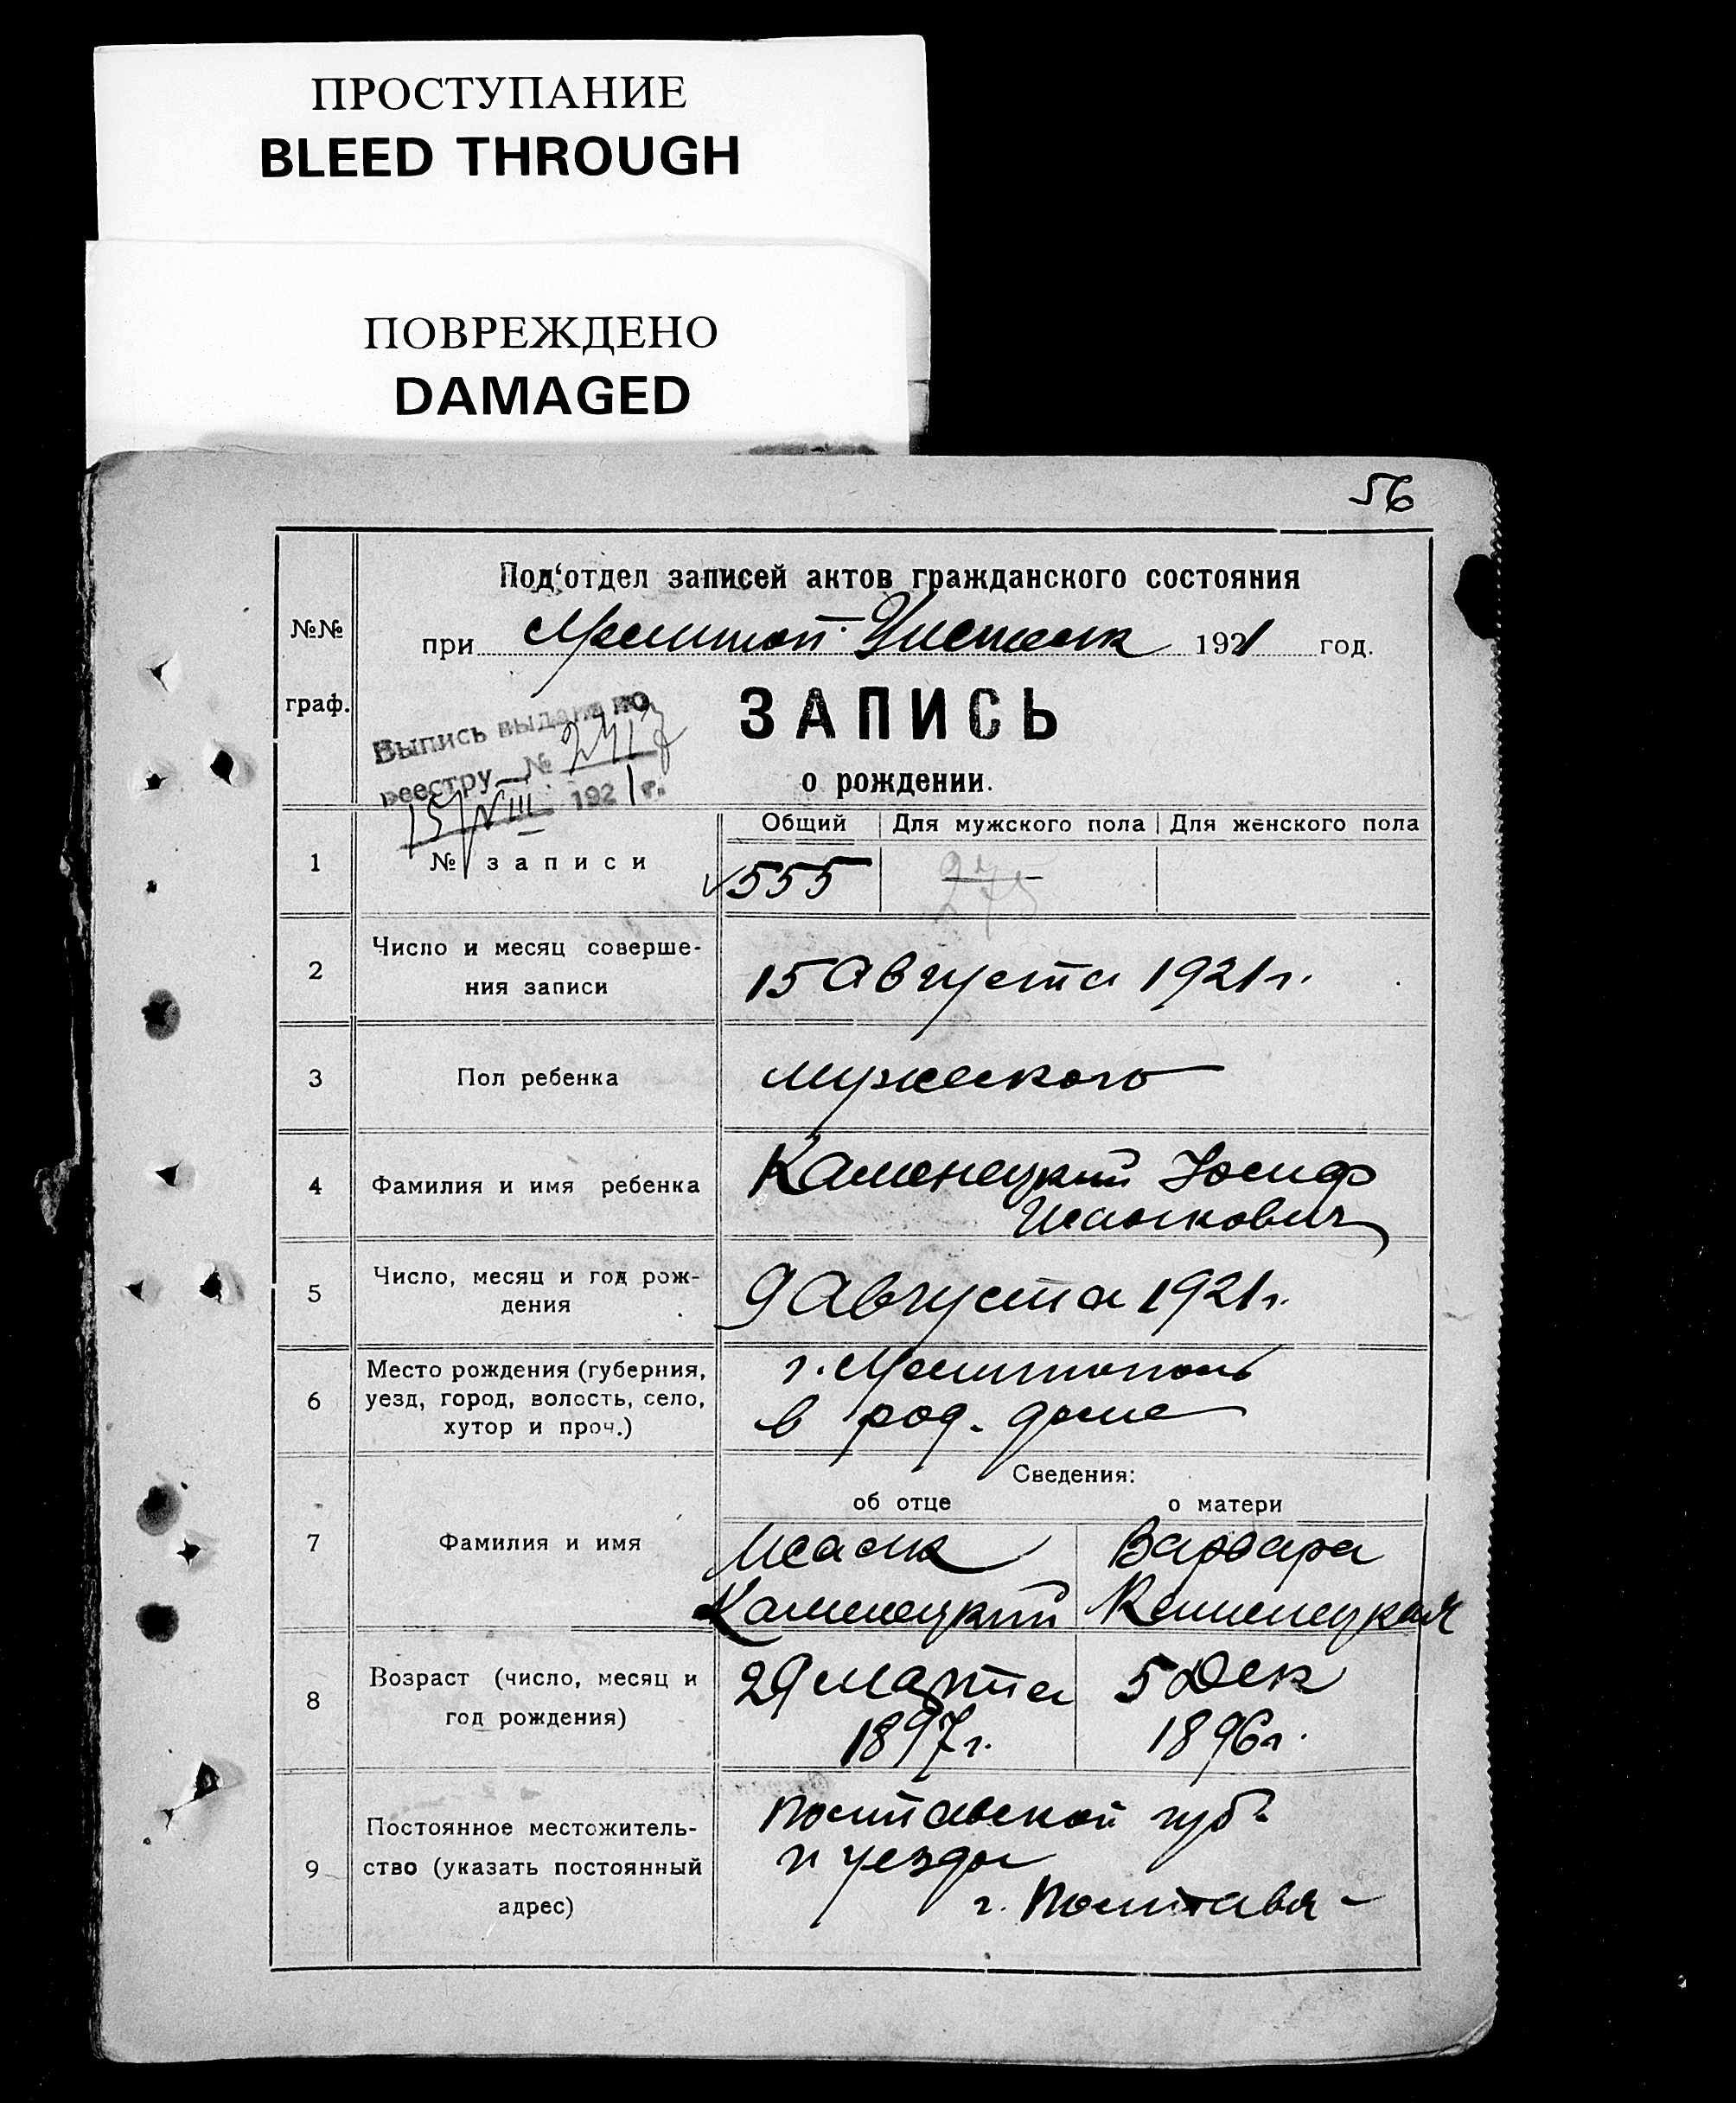 ПРОСТУПАНИЕ
BLEED THROUGH
ПОВРЕЖДЕНО
DAMAGED
56
№№ граф.
Под‘отдел записей актов гражданского состояния
при 1921 год.
ЗАПИСЬ
о рождении.
Выпись выдана по
реестру № 2417
15/VIII 1921 г.
Общий Для мужского пола Для женского пола
1 № записи 555 275
2 Число и месяц соверше-
ния записи 15 Августа 1921 г.
3 Пол ребенка мужеского
4 Фамилия и имя ребенка Каменецкий Иосиф
Исаакович
5 Число, месяц и год рож-
дения 9 Августа 1921 г.
6 Место рождения (губерния,
уезд, город, волость, село,
хутор и проч.) г. Мелитополь
в род. доме
Сведения:
об отце о матери
7 Фамилия и имя Исаак Варвара
Каменецкий Каменецкая
8 Возраст (число, месяц и
год рождения) 29 марта 1897 г. 5 Дек 1896 г.
9 Постоянное местожитель-
ство (указать постоянный
адрес) Полтавской губ.
и уезда
г. Полтава